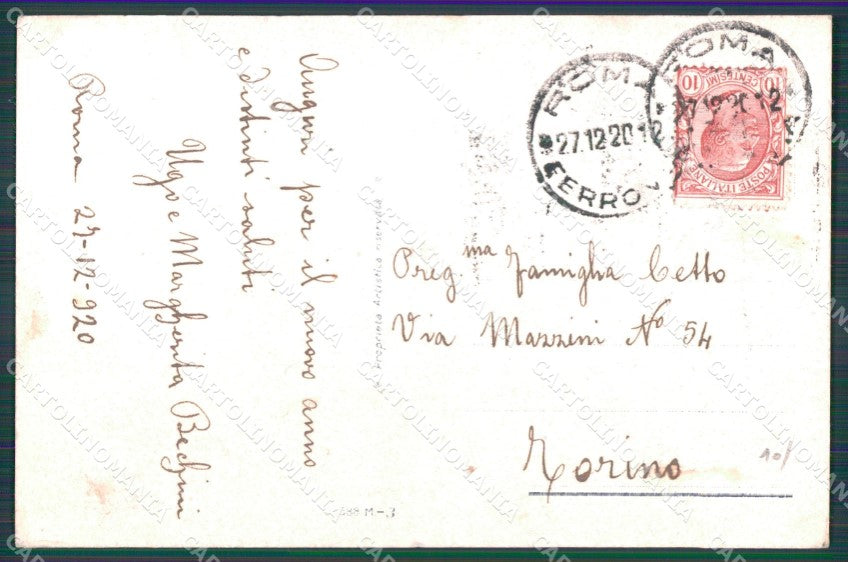 Roma 27-12-920
Auguri per il nuovo anno
e distinti saluti
Ugo e Margherita Bechini
Proprietà Artistica riservata
M-3
Preg.ma Famiglia Cetto
Via Mazzini No 54
Torino
10/
ROMA
27.12.20.12
FERROV
ROMA
27.12.20.12
10 CENTESIMI 10
POSTE ITALIANE
CARTOLINOMANIA